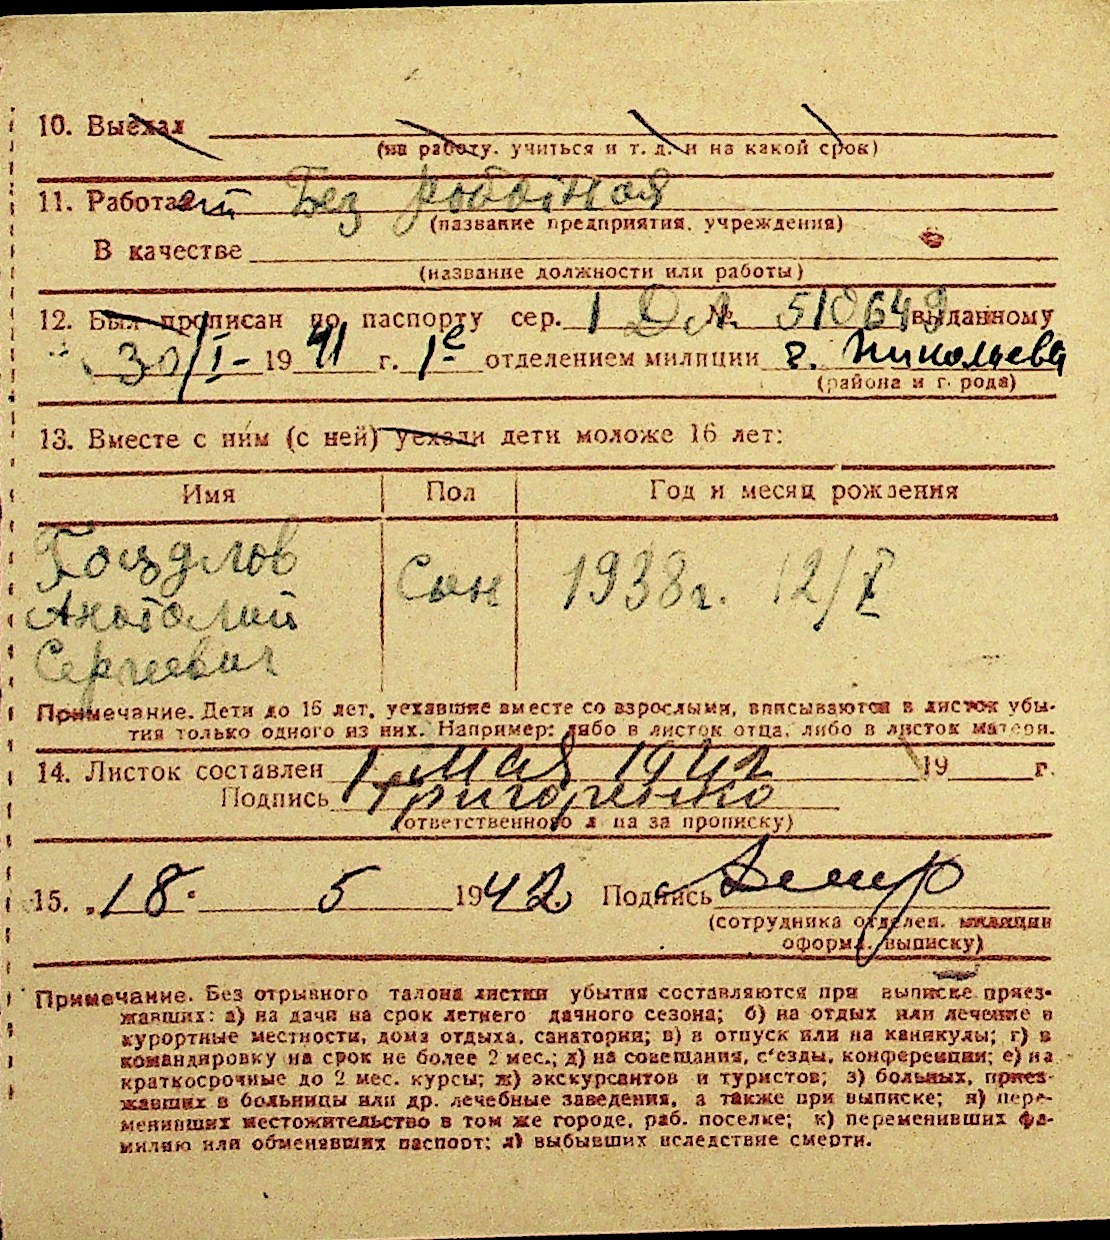 10. Выехал
(на работу, учиться и т. д. и на какой срок)
11. Работает Без работная
(название предприятия, учреждения)
В качестве
(название должности или работы)
12. Был прописан по паспорту сер. 1 ДЛ № 510649 выданному
30/I- 1941 г. 1е отделением милиции г. Николаева
(района и города)
13. Вместе с ним (с ней) уехали дети моложе 16 лет:
Имя Пол Год и месяц рождения
Анатолий Сын 1938г. 12/X
Сергеевич
Примечание. Дети до 16 лет, уехавшие вместе со взрослыми, вписываются в листок убы-
тия только одного из них. Например: либо в листок отца, либо в листок матери.
14. Листок составлен 1 мая 1942 19 г.
Подпись Григоренко
(ответственного л па за прописку)
15. „18" 5 1942 Подпись
(сотрудника отделен. милиции
оформл. выписку)
Примечание. Без отрывного талона листки убытия составляются при выписке приез-
жавших: а) на дачи на срок летнего дачного сезона; б) на отдых или лечение в
курортные местности, дома отдыха, санатории; в) в отпуск или на каникулы; г) в
командировку на срок не более 2 мес.; д) на совещания, с'езды, конференции; е) на
краткосрочные до 2 мес. курсы; ж) экскурсантов и туристов; з) больных, приез-
жавших в больницы или др. лечебные заведения, а также при выписке; и) пере-
менивших местожительство в том же городе, раб. поселке; к) переменивших фа-
милию или обменявших паспорт; л) выбывших вследствие смерти.